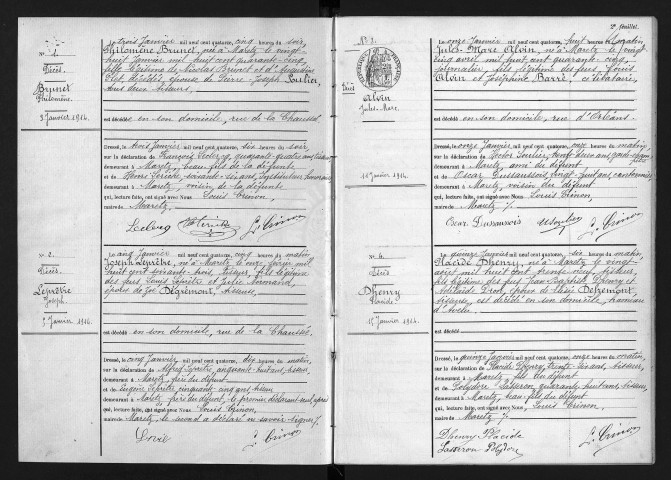 N° 1.
Décès.
Brunet
Philomène.
3 Janvier 1914.
Le trois Janvier mil neuf cent quatorze, cinq heures du soir,
Philomène Brunet, née à Maretz le vingt-
huit Janvier mil huit cent quarante-cinq,
fille légitime de Nicolas Brunet et d'Augustine
décédés, épouse de Pierre-Joseph
tous deux tisseurs,
est décédée en son domicile, rue de la Chaussée
Dressé, le trois Janvier mil neuf cent quatorze, six heures du soir,
sur la déclaration de François Leclercq, quarante-quatre ans,
demeurant à Maretz, beau-fils de la défunte
et de soixante-six ans, Instituteur honoraire
demeurant à Maretz, voisin de la défunte
qui, lecture faite, ont signé avec Nous Louis Crinon,
maire de Maretz.
Leclercq L. Crinon
N° 2.
Décès.
Leprêtre
Joseph.
5 Janvier 1914.
Le cinq Janvier mil neuf cent quatorze, cinq heures du matin
Joseph Leprêtre, né à Maretz le onze février mil
huit cent soixante-trois, tisseur, fils légitime
des feus Louis Leprêtre et Julie Armand,
époux de Zoé Dégremont, tisseuse,
est décédé en son domicile, rue de la Chaussée.
Dressé, le cinq Janvier mil neuf cent quatorze, dix heures du matin,
sur la déclaration de Alfred Leprêtre, cinquante-huit ans, tisseur
demeurant à Maretz, frère du défunt
et de Eugène Leprêtre, cinquante-cinq ans, tisseur
demeurant à Maretz, frère du défunt, le premier déclarant seul, après
qui, lecture faite, ont signé avec Nous Louis Crinon,
maire de Maretz, le second a déclaré ne savoir signer.
L. Crinon
2e feuillet.
N° 3.
Décès
Alvin
Jules-Marc.
11 Janvier 1914.
Le onze Janvier mil neuf cent quatorze, huit heures du matin,
Jules-Marc Alvin, né à Maretz le vingt-
cinq avril mil huit cent quarante-cinq,
journalier, fils légitime des feus Louis
Alvin et Joséphine Barré, célibataire,
est décédé en son domicile, rue d'Orléans.
Dressé, le onze Janvier mil neuf cent quatorze, onze heures du matin,
sur la déclaration de trente-deux ans, garde-champêtre
demeurant à Maretz, ami du défunt
et de Oscar Dussaussois, vingt-huit ans, cantonnier
demeurant à Maretz, voisin du défunt
qui, lecture faite, ont signé avec Nous Louis Crinon,
maire de Maretz.
Oscar Dussaussois L. Crinon
N° 4.
Décès
Dhenry
Placide.
15 Janvier 1914.
Le quinze Janvier mil neuf cent quatorze, six heures du matin,
Placide Dhenry, né à Maretz le vingt-
août mil huit cent trente-neuf, tisseur,
fils légitime des feus Jean-Baptiste Dhenry et
Adélaïde époux de Élise Dégremont,
tisseuse, est décédé en son domicile, hameau
d'Avelu.
est décédé
Dressé, le quinze Janvier mil neuf cent quatorze, onze heures du matin,
sur la déclaration de Placide Dhenry, trente-six ans, tisseur,
demeurant à Maretz, fils du défunt
et de Polydore Lasseron, quarante-huit ans, tisseur,
demeurant à Maretz, beau-fils du défunt
qui, lecture faite, ont signé avec Nous Louis Crinon,
maire de Maretz.
Dhenry Placide
Lasseron Polydore L. Crinon